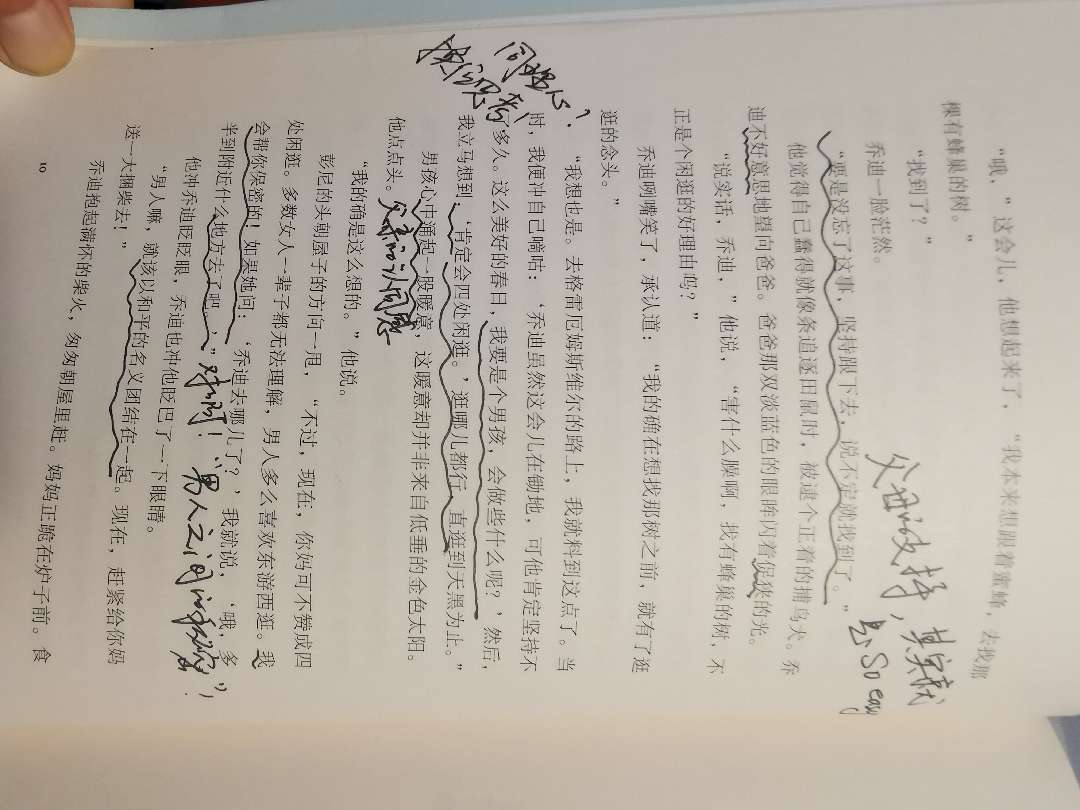 “哦，”这会儿，他想起来了，“我本来想跟着蜜蜂，去找那
棵有蜂巢的树。”
“找到了？”
乔迪一脸茫然。
父母的支持，其实就
是so easy
“要是没忘了这事，坚持跟下去，说不定就找到了。”
他觉得自己蠢得就像条追逐田鼠时，被逮个正着的捕鸟犬。乔
迪不好意思地望向爸爸。爸爸那双淡蓝色的眼眸闪着促狭的光。
“说实话，乔迪，”他说，“害什么臊啊，找有蜂巢的树，不
正是个闲逛的好理由吗？”
乔迪咧嘴笑了，承认道：“我的确在想找那树之前，就有了逛
逛的念头。”
同理心？
换位思考
“我想也是。去格雷厄姆斯维尔的路上，我就料到这点了。当
时，我便冲自己嘀咕：‘乔迪虽然这会儿在锄地，可他肯定坚持不
了多久。这么美好的春日，我要是个男孩，会做些什么呢？’然后，
我立马想到：‘肯定会四处闲逛。’逛哪儿都行，直逛到天黑为止。”
男孩心中涌起一股暖意，这暖意却并非来自低垂的金色太阳。
他点点头。
父亲的认同感
“我的确是这么想的。”他说。
彭尼的头朝屋子的方向一甩，“不过，现在，你妈可不赞成四
处闲逛。多数女人一辈子都无法理解，男人多么喜欢东游西逛。我
会帮你保密的！如果她问：‘乔迪去哪儿了？’我就说，‘哦，多
半到附近什么地方去了吧。’”
对啊！“男人之间的秘密”！
他冲乔迪眨眨眼，乔迪也冲他眨巴了一下眼睛。
“男人嘛，就该以和平的名义团结在一起。现在，赶紧给你妈
送一大捆柴去！”
乔迪抱起满怀的柴火，匆匆朝屋里赶。妈妈正跪在炉子前。食
10